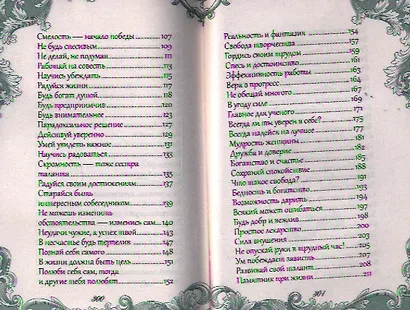 Смелость — начало победы 107
Не будь спесивым 109
Не делай, не подумав 111
Работай на совесть 113
Научись убеждать 115
Радуйся жизни 117
Будь богат душой 118
Будь предприимчив 120
Будь внимательнее 123
Парадоксальное решение 127
Действуй уверенно 129
Умей увидеть важное 131
Научись радоваться 133
Скромность — тоже сестра
таланта 135
Радуйся своим достижениям 137
Старайся быть
интересным собеседником 139
Не можешь изменить
обстоятельства — изменись сам 140
Неудачи чужие, а успех твой 143
В несчастье будь терпелив 147
Познай себя самого 148
В жизни должна быть цель 151
Полюби себя сам, тогда
и другие тебя полюбят 152
300
Реальность и фантазии 154
Свобода творчества 157
Гордись своим трудом 159
Спесь и достоинство 161
Эффективность работы 163
Вера в прогресс 164
Не обещай многого 167
В угоду силе 169
Главное для ученого 171
Всегда ли ты уверен в себе? 175
Всегда надейся на лучшее 177
Мудрость женщины 181
Дружба и доверие 183
Богатство и счастье 185
Сохраняй спокойствие 186
Что такое свобода? 191
Бедность и богатство 193
Возможность дарить 194
Всякий может ошибаться 197
Будь добр и вежлив 198
Простое лекарство 200
Сила внушения 203
Не опускай руки в трудный час! 205
Ум побеждает зависть 207
Развивай свой талант 208
Памятник при жизни 211
301